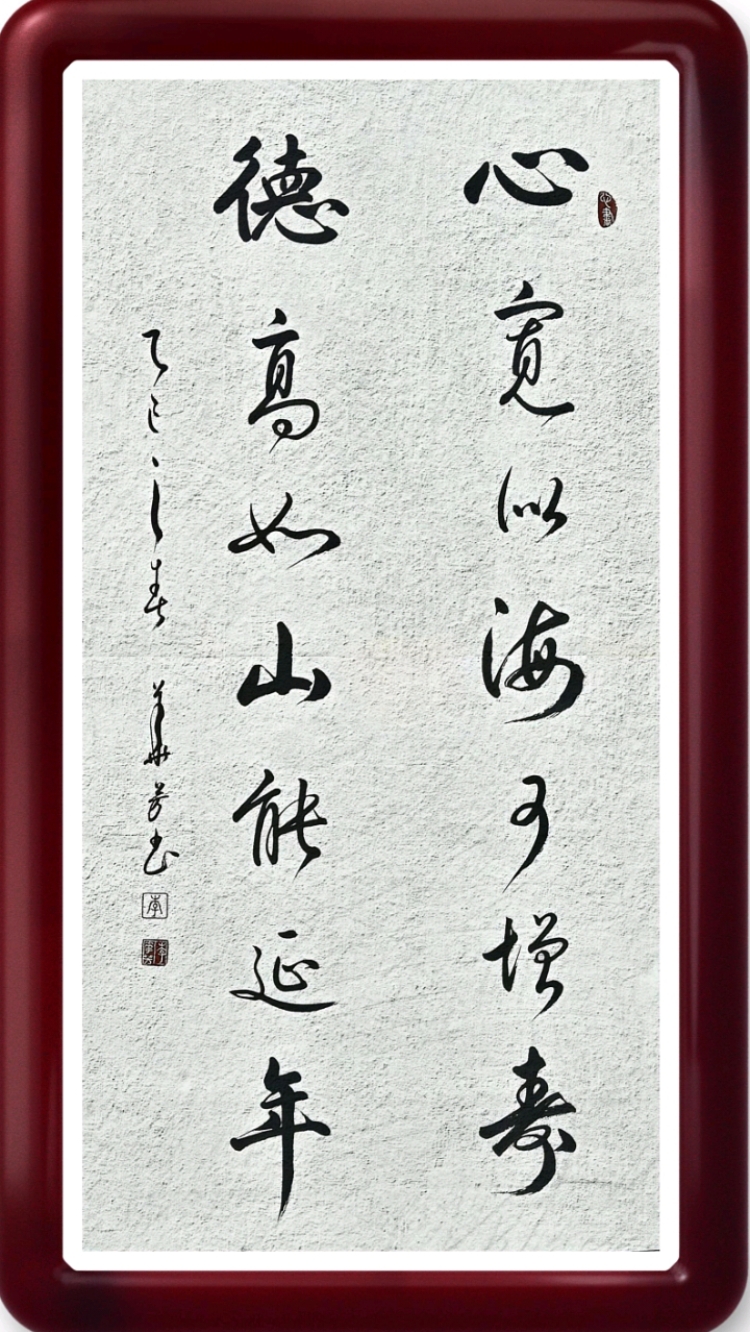 心宽似海可增寿
德高如山能延年
乙巳之春 華芳书
李